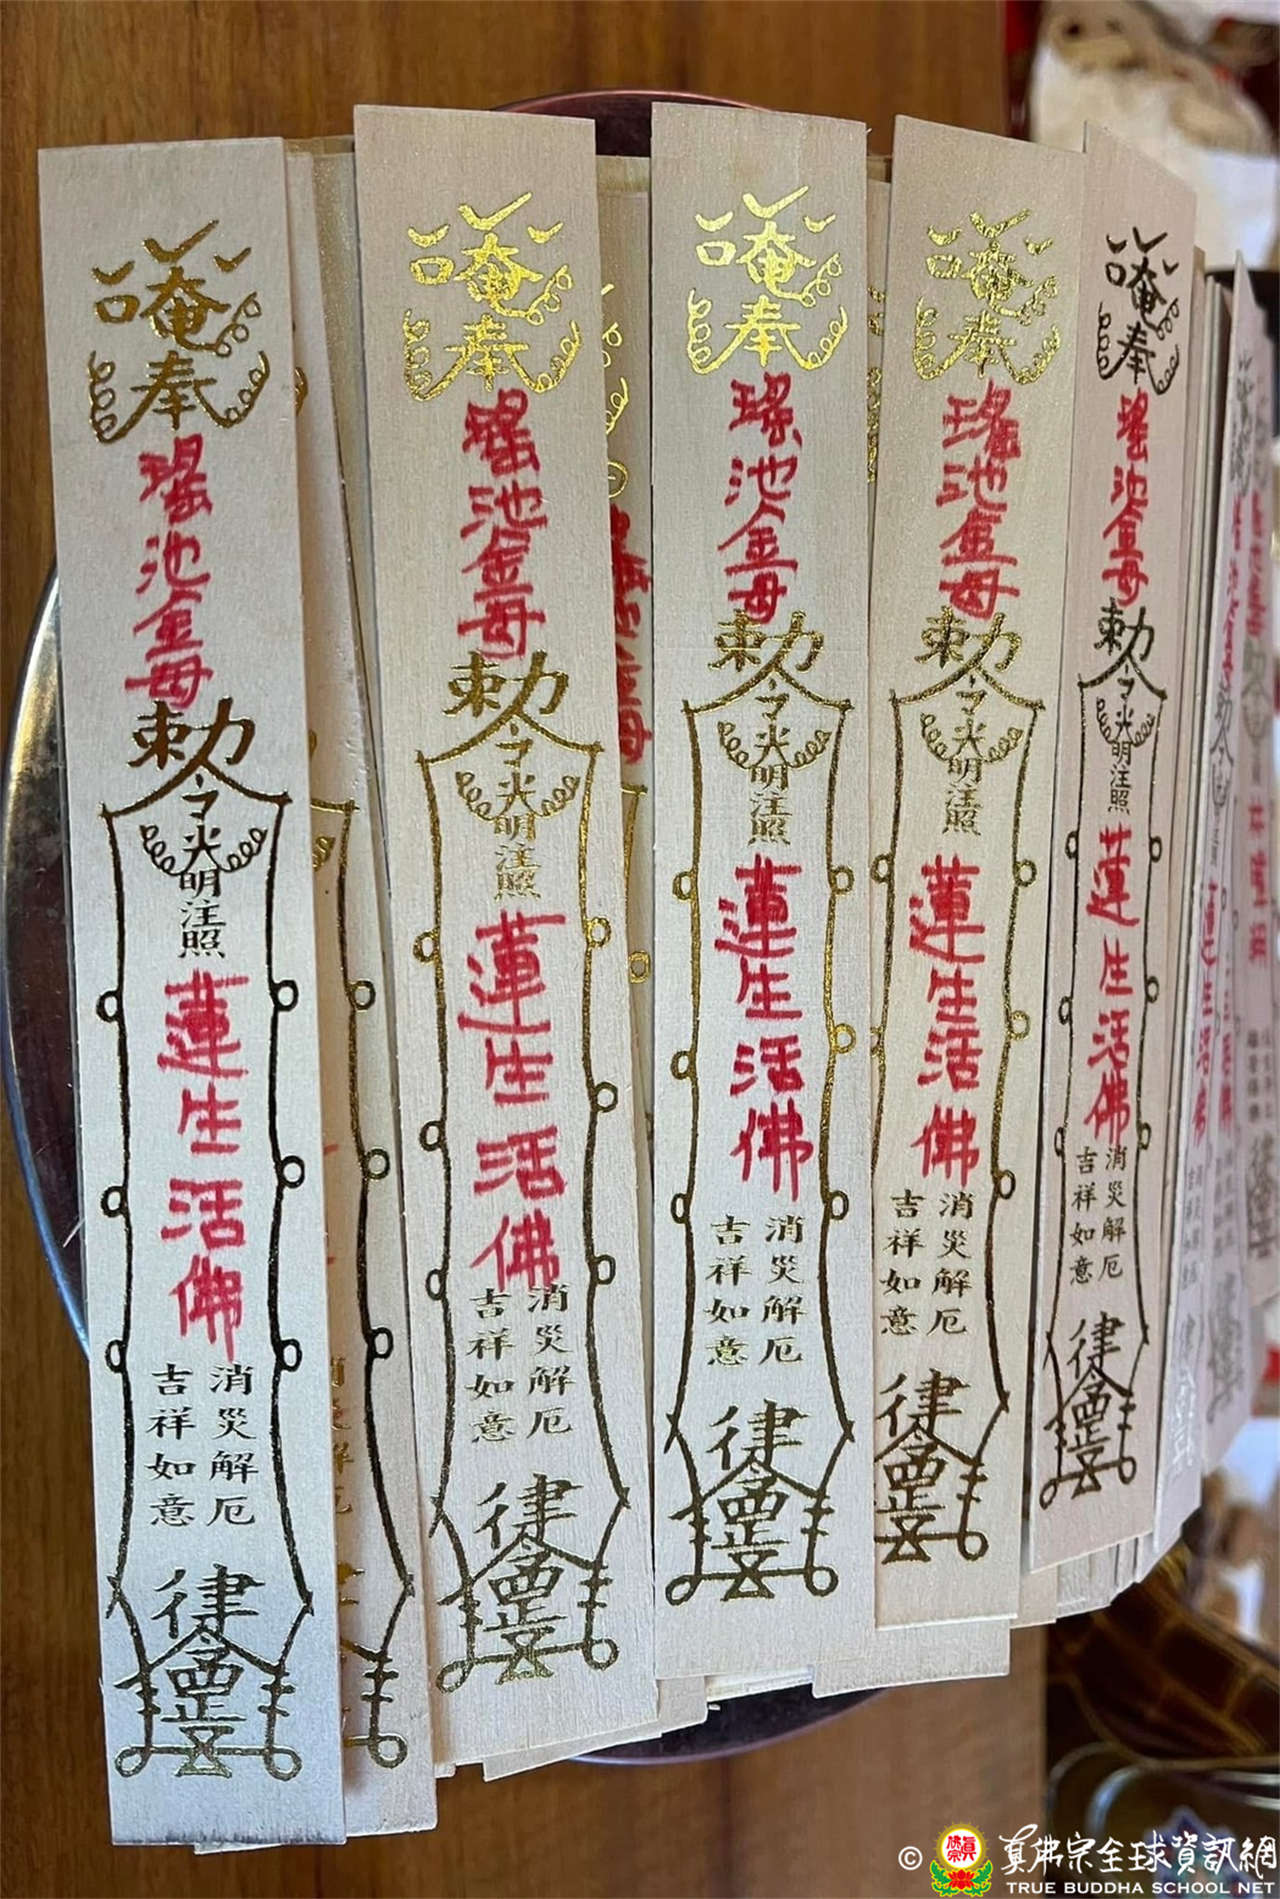 唵
奉
瑤池金母
勅令
光明注照
蓮生活佛
消災解厄
吉祥如意
律令
唵
奉
瑤池金母
勅令
光明注照
蓮生活佛
消災解厄
吉祥如意
律令
唵
奉
瑤池金母
勅令
光明注照
蓮生活佛
消災解厄
吉祥如意
律令
唵
奉
瑤池金母
勅令
光明注照
蓮生活佛
消災解厄
吉祥如意
律令
唵
奉
瑤池金母
勅令
光明注照
蓮生活佛
消災解厄
吉祥如意
律令
© 真佛宗全球資訊網
TRUE BUDDHA SCHOOL NET